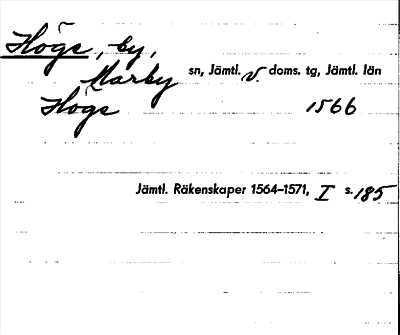 Högs, by,
Marby sn, Jämtl. v. doms. tg, Jämtl. län
Högs 1566
Jämtl. Räkenskaper 1564–1571, I s. 185